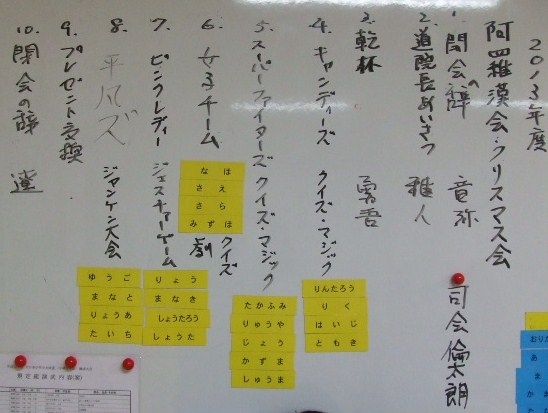 2013年度
阿羅漢会・クリスマス会
1. 開会の辞 竜弥
司会 倫太朗
2. 道院長あいさつ 雅人
3. 乾杯
4. キャンディーズ クイズ・マジック
りんたろう
りく
はいじ
ともき
5. スーパーファイターズ クイズ・マジック
たかふみ
りゅうや
じょう
かずま
しゅうま
6. 女子チーム 劇 クイズ
なほ
さえ
さら
みずほ
7. ピンクレディー ジェスチャーゲーム
りょう
まなき
しょうたろう
しょうた
8. 平パズ ジャンケン大会
ゆうご
まなと
りょうあ
たいち
9. プレゼント交換
10. 閉会の辞 蓮